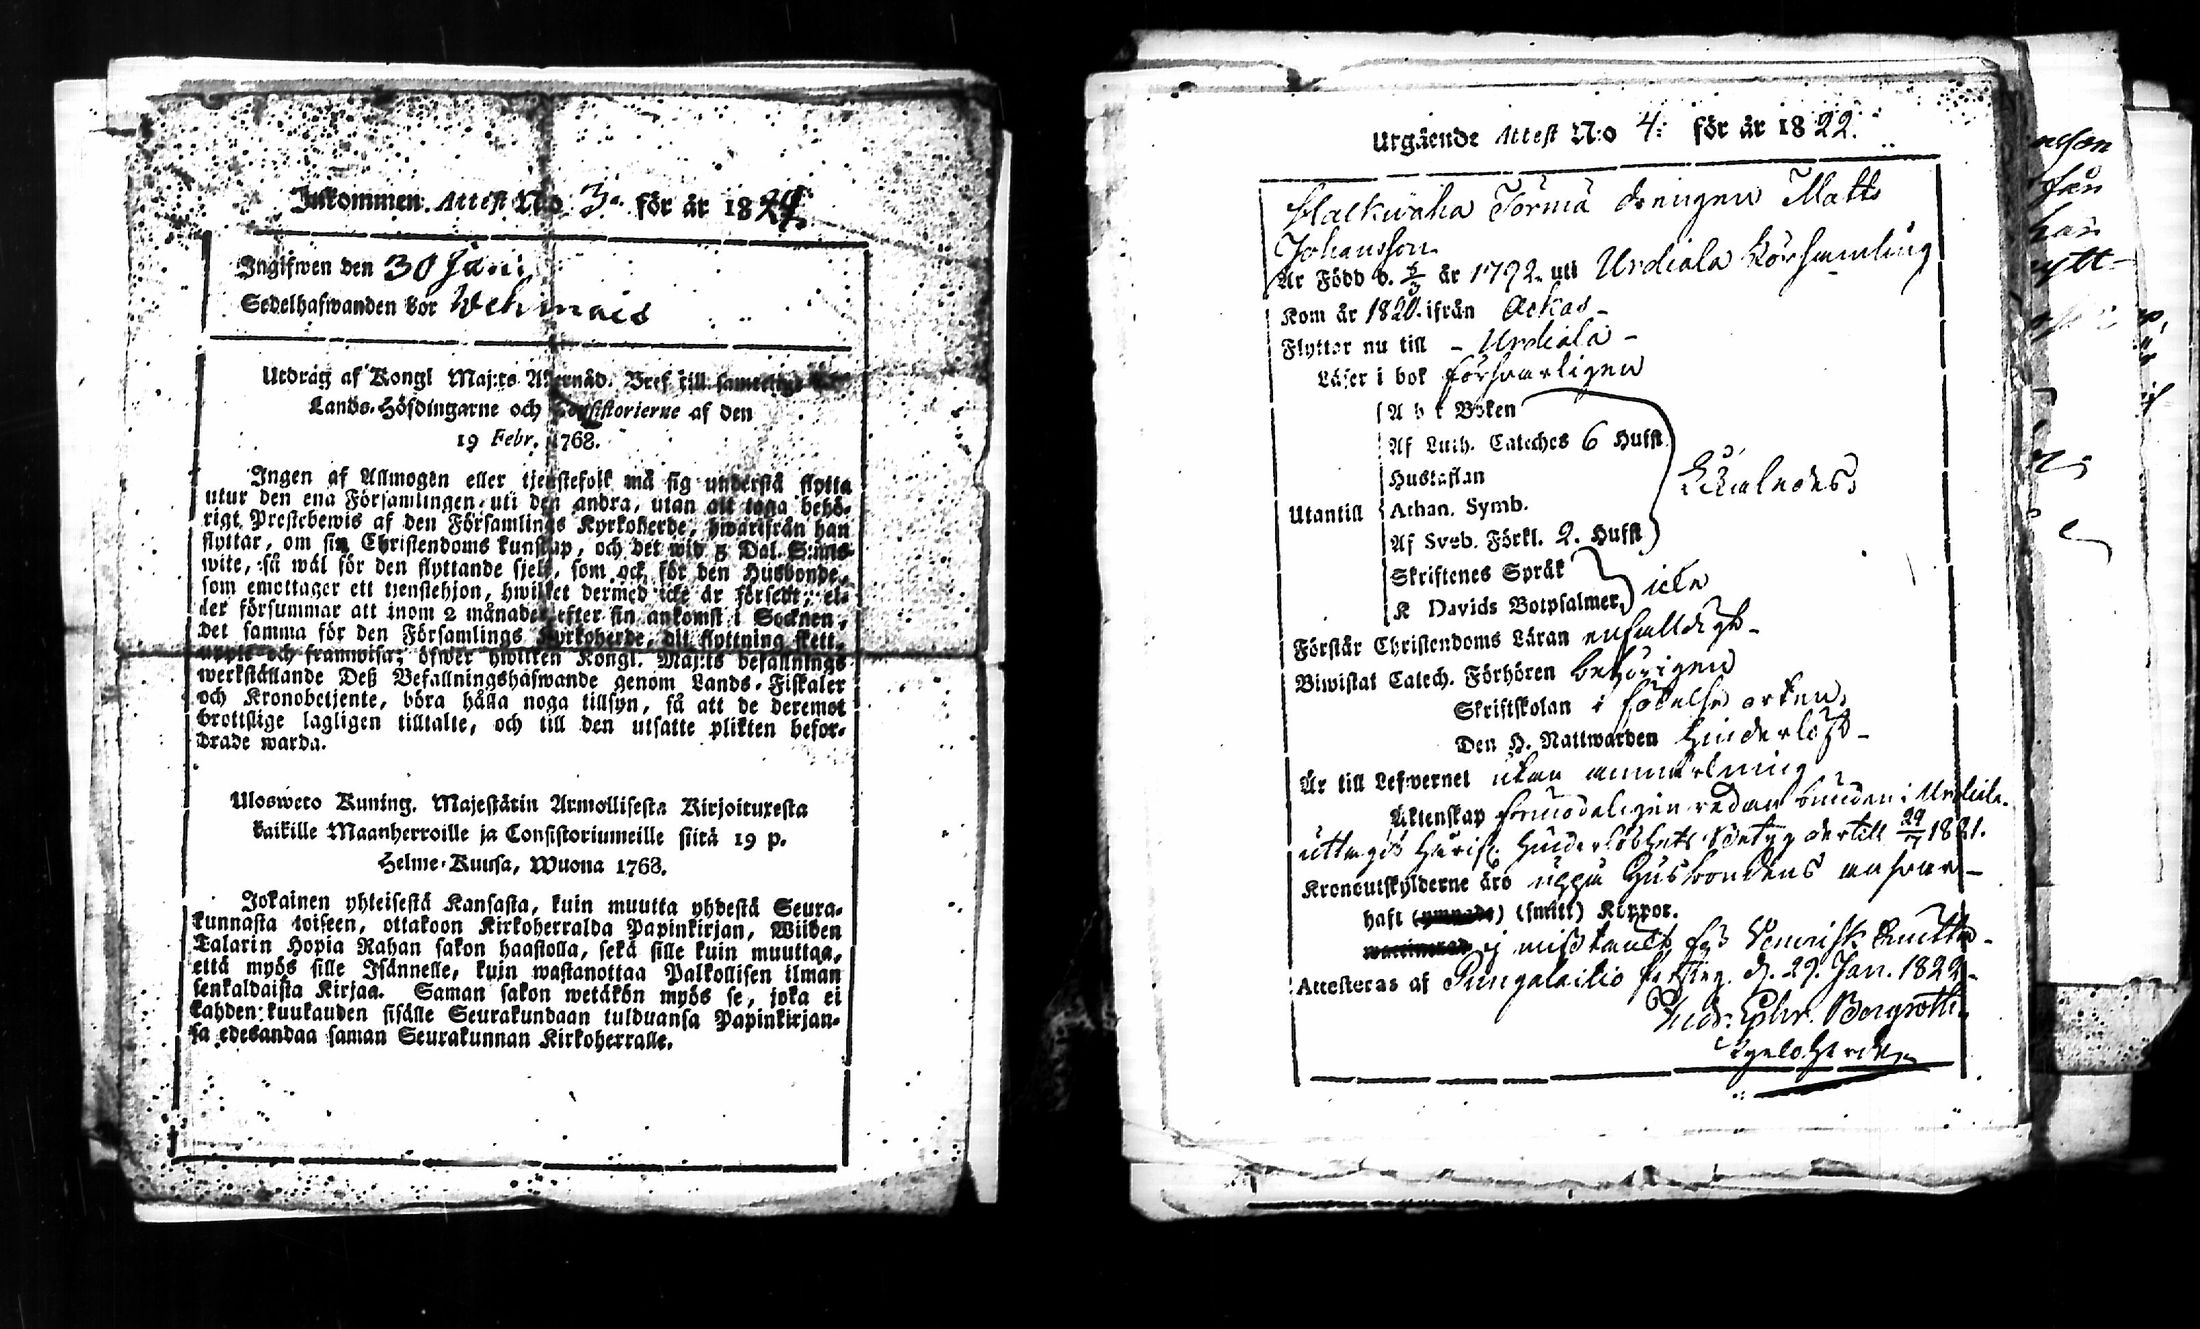 Inkommen Attest No 3. för år 1822.
Ingifwen den 30 Jan:
Sedelhafwanden bor Wehmais
Utdrag af Kongl Maj:ts Allernåd. Bref till samtelige
Lands-Höfdingarne och Consistorierne af den
19 Febr. 1768.
Ingen af Allmogen eller tjenstefolk må sig understå flytta
utur den ena Församlingen uti den andra, utan att taga behö-
rigt Prestebewis af den Församlings Kyrkoherde, hwarifrån han
flyttar, om sin Christendoms kunskap, och det wid 5 Dal. S:mts
wite, så wäl för den flyttande sjelf, som ock för den Husbonde,
som emottager ett tjenstehjon, hwilket dermed icke är försedt; el-
ler försummar att inom 2 månader efter sin ankomst i Socknen,
det samma för den Församlings Kyrkoherde, dit flyttning skett,
uppte och framwisa; öfwer hwilken Kongl. Maj:ts befallnings
werkställande Deß Befallningshafwande genom Lands-Fiskaler
och Kronobetjente, böra hålla noga tillsyn, så att de deremot
brottslige lagligen tilltalte, och till den utsatte plikten befor-
drade warda.
Ulosweto Kuning. Majestätin Armollisesta Kirjoituxesta
kaikille Maanherroille ja Consistoriumeille siitä 19 p.
Helme-Kuusa, Wuona 1768.
Jokainen yhteisestä Kansasta, kuin muutta yhdestä Seura-
kunnasta toiseen, ottakoon Kirkoherralda Papinkirjan, Wiiden
Talarin Hopia Rahan sakon haastolla, sekä sille kuin muuttaa,
että myös sille Isännelle, kuin wastanottaa Palkollisen ilman
senkaldaista Kirjaa. Saman sakon wetäkön myös se, joka ei
kahden kuukauden sisälle Seurakundaan tulduansa Papinkirjan-
sa edesandaa saman Seurakunnan Kirkoherralle.
Utgående Attest N:o 4: för år 1822.
Törmä drengen Matts
Johansson
Är Född d. 5/3 år 1792 uti Urdiala Församling
Kom år 1820 ifrån Ackas -
Flyttar nu till - Urdiala -
Läser i bok försvarligen
A b c Boken
Af Luth. Cateches 6 Hufst
Hustaflan
Utantill Athan. Symb.
Af Sveb. Förkl. 2. Hufst
Skriftenes Språk
K Davids Botpsalmer icke
Förstår Christendoms Läran enfalldigt -
Biwistat Catech. Förhören behörigen
Skriftskolan i födelse orten,
Den H. Nattwarden hinderlöst -
Är till Lefwernet utan anmärkning
Äktenskap förmodeligen redan bunden i Urdiala.
uttagit härifr. Hinderlöshets Betyg dertill 29/7 1821.
Kronoutskylderne äro uppå Husbondens ansvar -
haft () (smitt) Koppor.
ej misstänkt för Venerisk Smitta -
Attesteras af Pungalaitio d. 29. Jan. 1822 -
Andr. Ephr. Bergroth.
Kyrkoherde